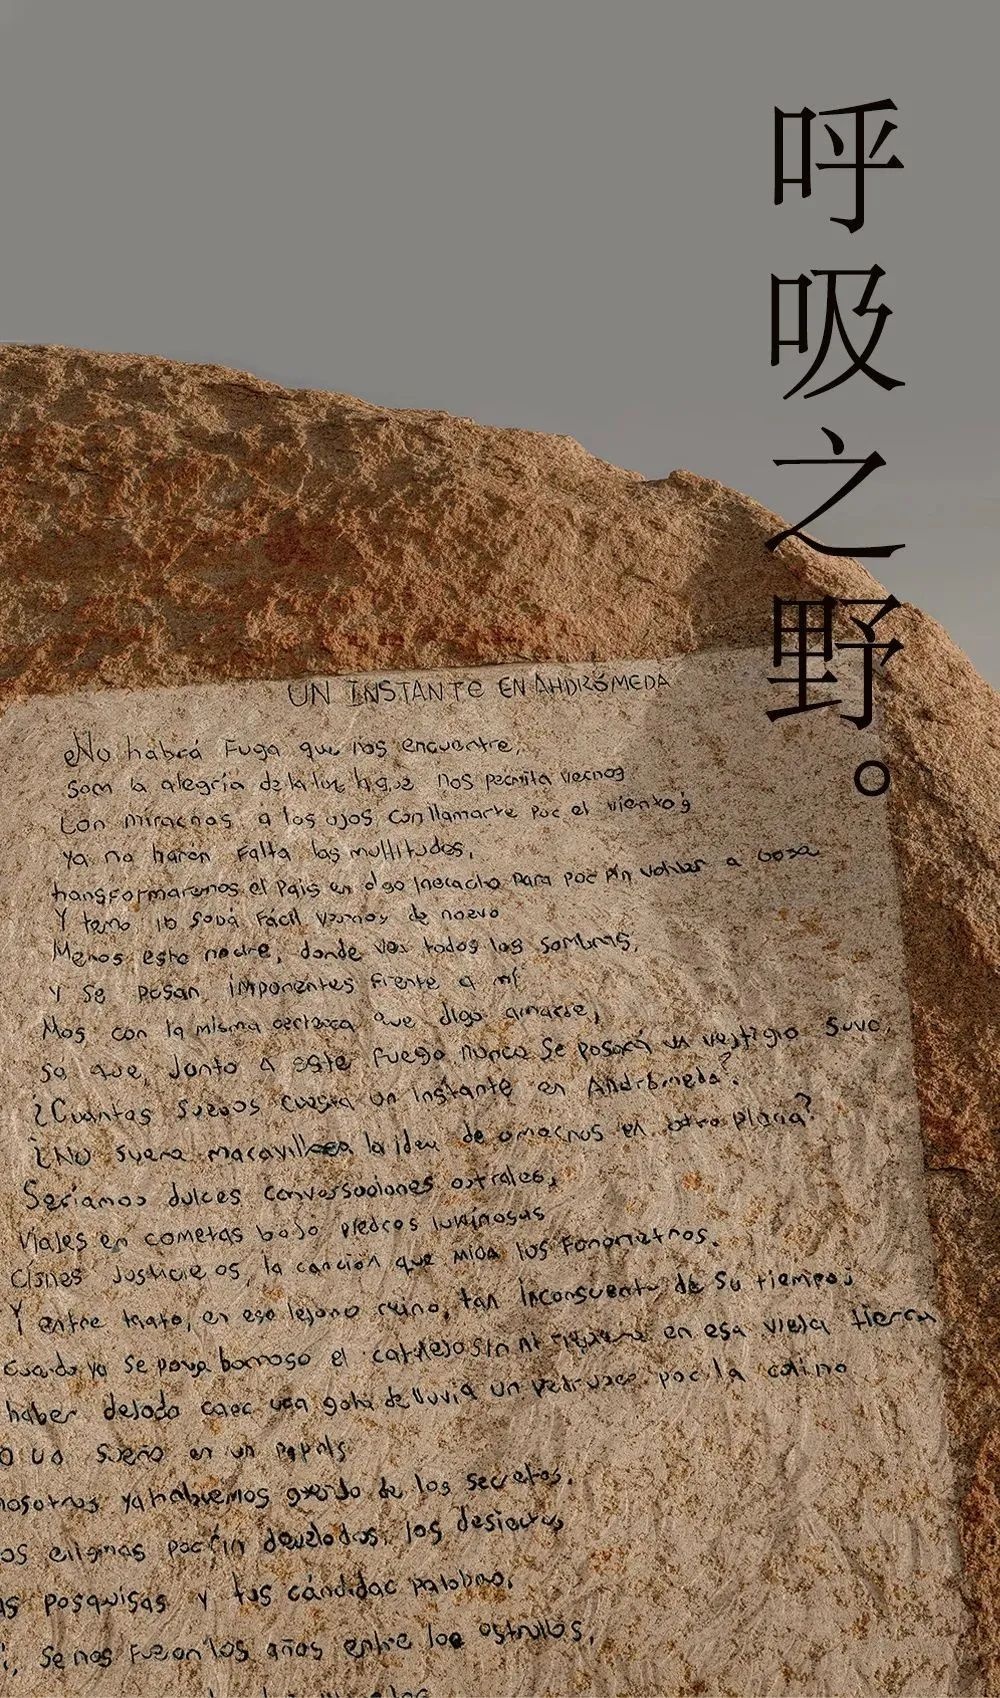 呼吸之野。
UN INSTANTE EN ANDRÓMEDA
No habrá Fuga que nos encuentre,
Som la alegría de la luz que nos permita vernos
Con mirarnos a los ojos con llamarte por el viento
Ya no harán Falta las multitudes,
transformaremos el País en algo Para por fin volver a
Y temo no será Fácil vernos de nuevo
Menos esta noche, donde veo todos las sombras,
Y Se posan imponentes Frente a mí
Mas con la misma certeza que digo amarte,
Se que, Junto a este Fuego nunca Se posará un vestigio Suyo,
¿Cuántos Sueños cuesta un Instante en Andrómeda?
¿No suena maravillosa la idea de amarnos en otro plana?
Seríamos dulces conversaciones astrales,
Viajes en cometas bajo piedras luminosas
Cisnes Justicieros, la canción que mida los Fonometros.
Y entre tanto, en ese lejano, tan Inconsuente de Su tiempo;
cuando ya Se ponga borroso el Sin ni siquiera en esa vieja tierra
haber dejado caer una gota de lluvia un por la colina
o un sueño en un
nosotros ya habremos de los secretos.
os enigmas por fin develados, los desiertos
as pesquisas y tus cándidas palabras.
Se nos Fueron los años entre las estrellas,